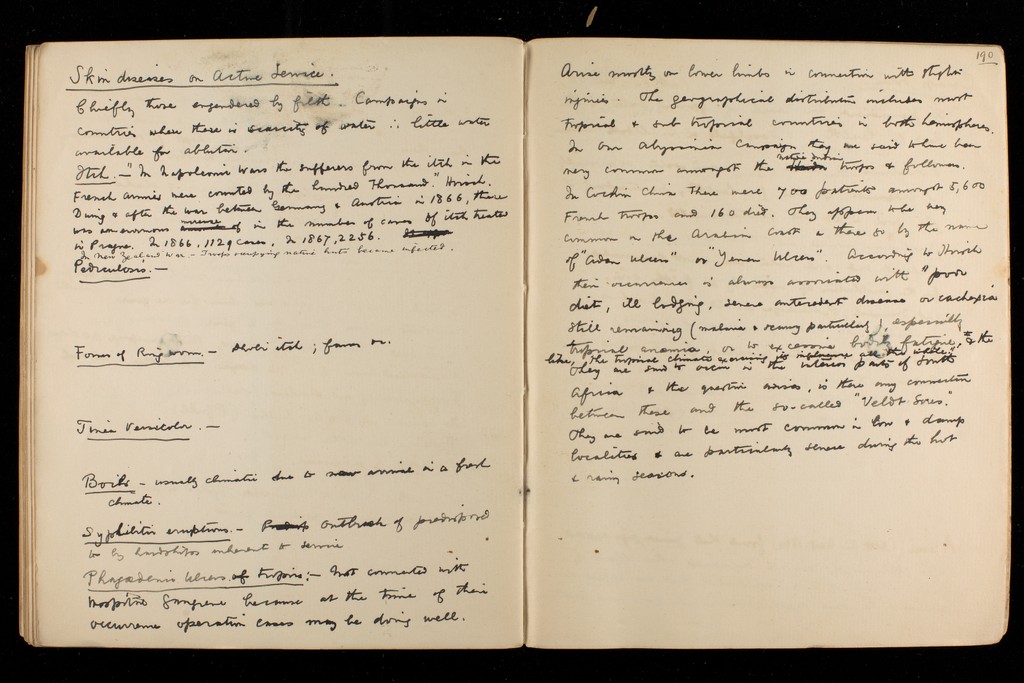 Skin diseases on Active Service.
Chiefly those engendered by filth. Campaigns in
countries where there is scarcity of water ∴ little water
available for ablution.
Itch. - "In Napoleonic wars the sufferers from the itch in the
French armies were counted by the hundred thousand." Hirsch.
During & after the war between Germany & Austria in 1866, there
was an enormous increase in the number of cases of itch treated
in Prague. In 1866, 1129 cases, In 1867, 2256.
In New Zealand War - Troops occupying native huts became infected.
Pediculosis. -
Forms of Ringworm. - Dhobi itch; favus
Tinea Versicolor. -
Boils - usually climatic due to new arrival in a fresh
climate.
Syphilitic eruptions. - outbreak of predisposed
to by hardships inherent to service
Phagedenic Ulcers of Tropics: - Not connected with
Hospital Gangrene because at the time of their
occurrence operation cases may be doing well.
190
Arise mostly on lower limbs in connection with slight
injuries. The geographical distribution includes most
tropical & sub tropical countries in both hemispheres.
In our Abyssinia Campaign they are said to have been
very common amongst the native Indian troops & followers.
In Cochin China there were 700 patients amongst 5,600
French troops and 160 died. They appear to be very
common on the Arabian Coast & there go by the name
of "Aden Ulcers" or "Yemen Ulcers". According to Hirsch
their occurrence is always associated with "poor
diet, ill lodging, severe antecedent disease or cachexia
still remaining (malaria & scurvy particularly), especially
tropical anaemia, or to excessive bodily fatigue, & the
like, the tropical climate exercising its influence all the while".
They are said to occur in the interior parts of South
Africa & the question arises, is there any connection
between these and the so-called "Veldt Sores."
They are said to be most common in low & damp
localities & are particularly severe during the hot
& rainy seasons.